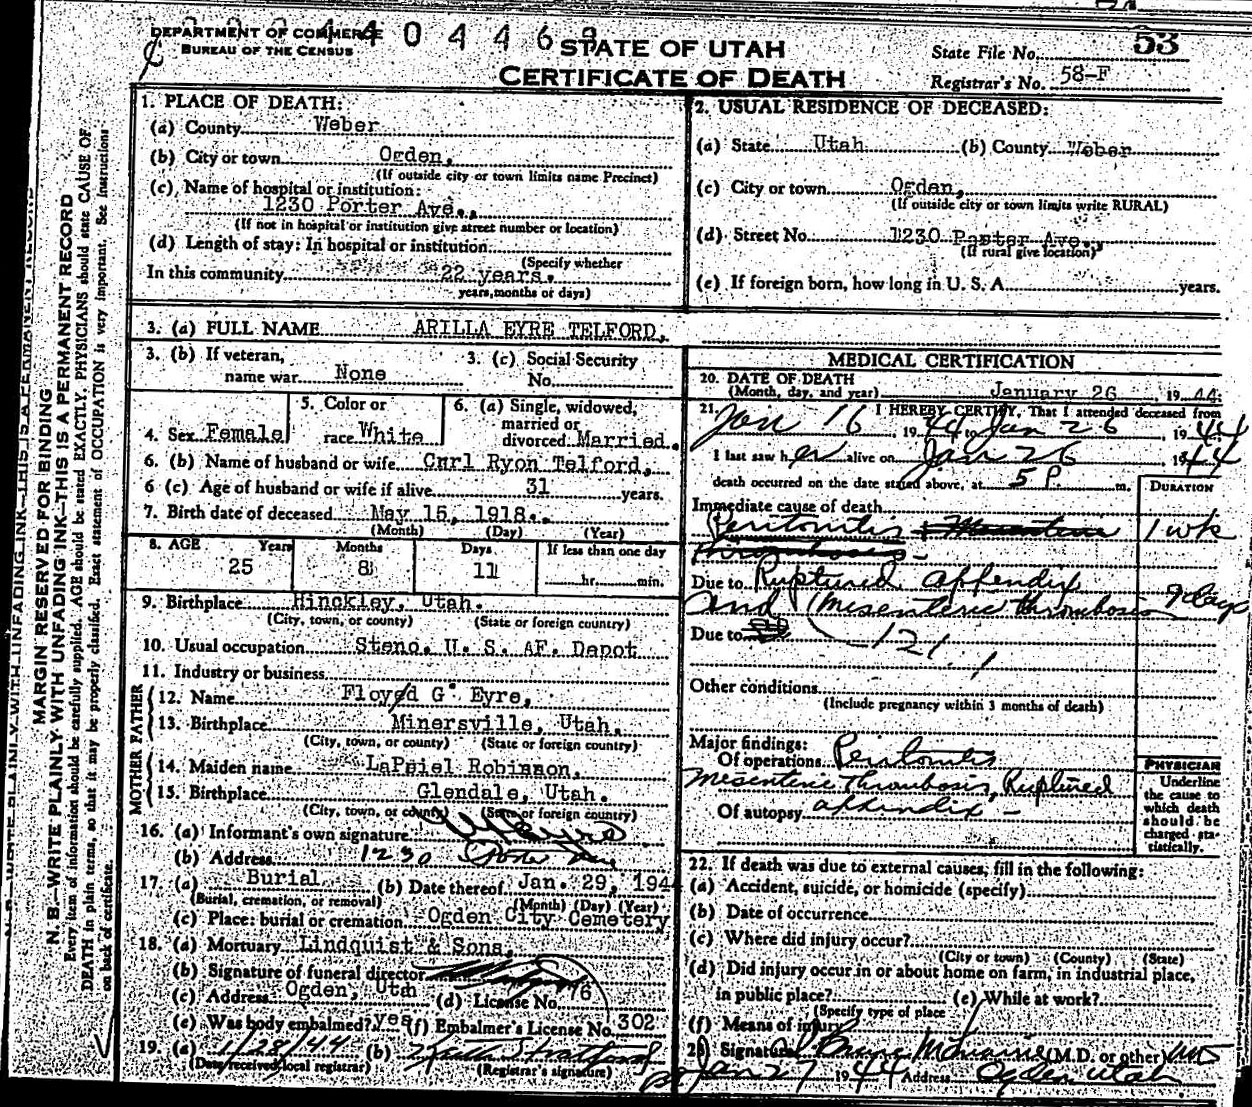 DEPARTMENT OF COMMERCE
BUREAU OF THE CENSUS
STATE OF UTAH
CERTIFICATE OF DEATH
State File No. 53
Registrar's No. 58-F
MARGIN RESERVED FOR BINDING
N. B.—WRITE PLAINLY WITH UNFADING INK—THIS IS A PERMANENT RECORD
Every item of information should be carefully supplied. AGE should be stated EXACTLY. PHYSICIANS should state CAUSE OF
DEATH in plain terms, so that it may be properly classified. Exact statement of OCCUPATION is very important. See instructions
on back of certificate.
1. PLACE OF DEATH:
(a) County Weber
(b) City or town Ogden,
(If outside city or town limits name Precinct)
(c) Name of hospital or institution:
1230 Porter Ave.,
(If not in hospital or institution give street number or location)
(d) Length of stay: In hospital or institution
(Specify whether
In this community 22 years.
years, months or days)
2. USUAL RESIDENCE OF DECEASED:
(a) State Utah (b) County Weber
(c) City or town Ogden,
(If outside city or town limits write RURAL)
(d) Street No. 1230 Porter Ave.,
(If rural give location)
(e) If foreign born, how long in U. S. A. years.
3. (a) FULL NAME ARILLA EYRE TELFORD,
3. (b) If veteran,
name war None
3. (c) Social Security
No.
4. Sex Female
5. Color or
race White
6. (a) Single, widowed,
married or
divorced Married.
6. (b) Name of husband or wife Carl Ryon Telford,
6 (c) Age of husband or wife if alive 31 years.
7. Birth date of deceased May 15, 1918.
(Month) (Day) (Year)
8. AGE Years Months Days If less than one day
25 8 11 hr. min.
9. Birthplace Hinckley, Utah.
(City, town, or county) (State or foreign country)
10. Usual occupation Steno. U. S. AF. Depot
11. Industry or business
FATHER
12. Name Floyd G. Eyre,
13. Birthplace Minersville, Utah.
(City, town, or county) (State or foreign country)
MOTHER
14. Maiden name LaPriel Robinson,
15. Birthplace Glendale, Utah.
(City, town, or county) (State or foreign country)
16. (a) Informant's own signature
(b) Address 1230 Porter Ave
17. (a) Burial (b) Date thereof Jan. 29, 194
(Burial, cremation, or removal) (Month) (Day) (Year)
(c) Place: burial or cremation Ogden City Cemetery
18. (a) Mortuary Lindquist & Sons,
(b) Signature of funeral director
(c) Address Ogden, Utah (d) License No. 76
(e) Was body embalmed? yes (f) Embalmer's License No. 302
19. (a) 1/28/44 (b)
(Date received local registrar) (Registrar's signature)
MEDICAL CERTIFICATION
20. DATE OF DEATH
(Month, day, and year) January 26, 1944.
21. I HEREBY CERTIFY, That I attended deceased from
Jan 16, 1944 to Jan 26, 1944
I last saw her alive on Jan 26 1944
death occurred on the date stated above, at 5 P m.
DURATION
Immediate cause of death
Peritonitis & Mesenteric 1 wk
thrombosis
Due to Ruptured appendix 9 days
and (Mesenteric thrombosis
Due to 121.1
Other conditions
(Include pregnancy within 3 months of death)
Major findings:
Of operations Peritonitis
Mesenteric thrombosis, Ruptured
Of autopsy appendix -
PHYSICIAN
Underline
the cause to
which death
should be
charged sta-
tistically.
22. If death was due to external causes, fill in the following:
(a) Accident, suicide, or homicide (specify)
(b) Date of occurrence
(c) Where did injury occur?
(City or town) (County) (State)
(d) Did injury occur in or about home on farm, in industrial place,
in public place? (e) While at work?
(Specify type of place
(f) Means of injury
23. Signature (M.D. or other) MD
Jan 27 1944 Address Ogden Utah